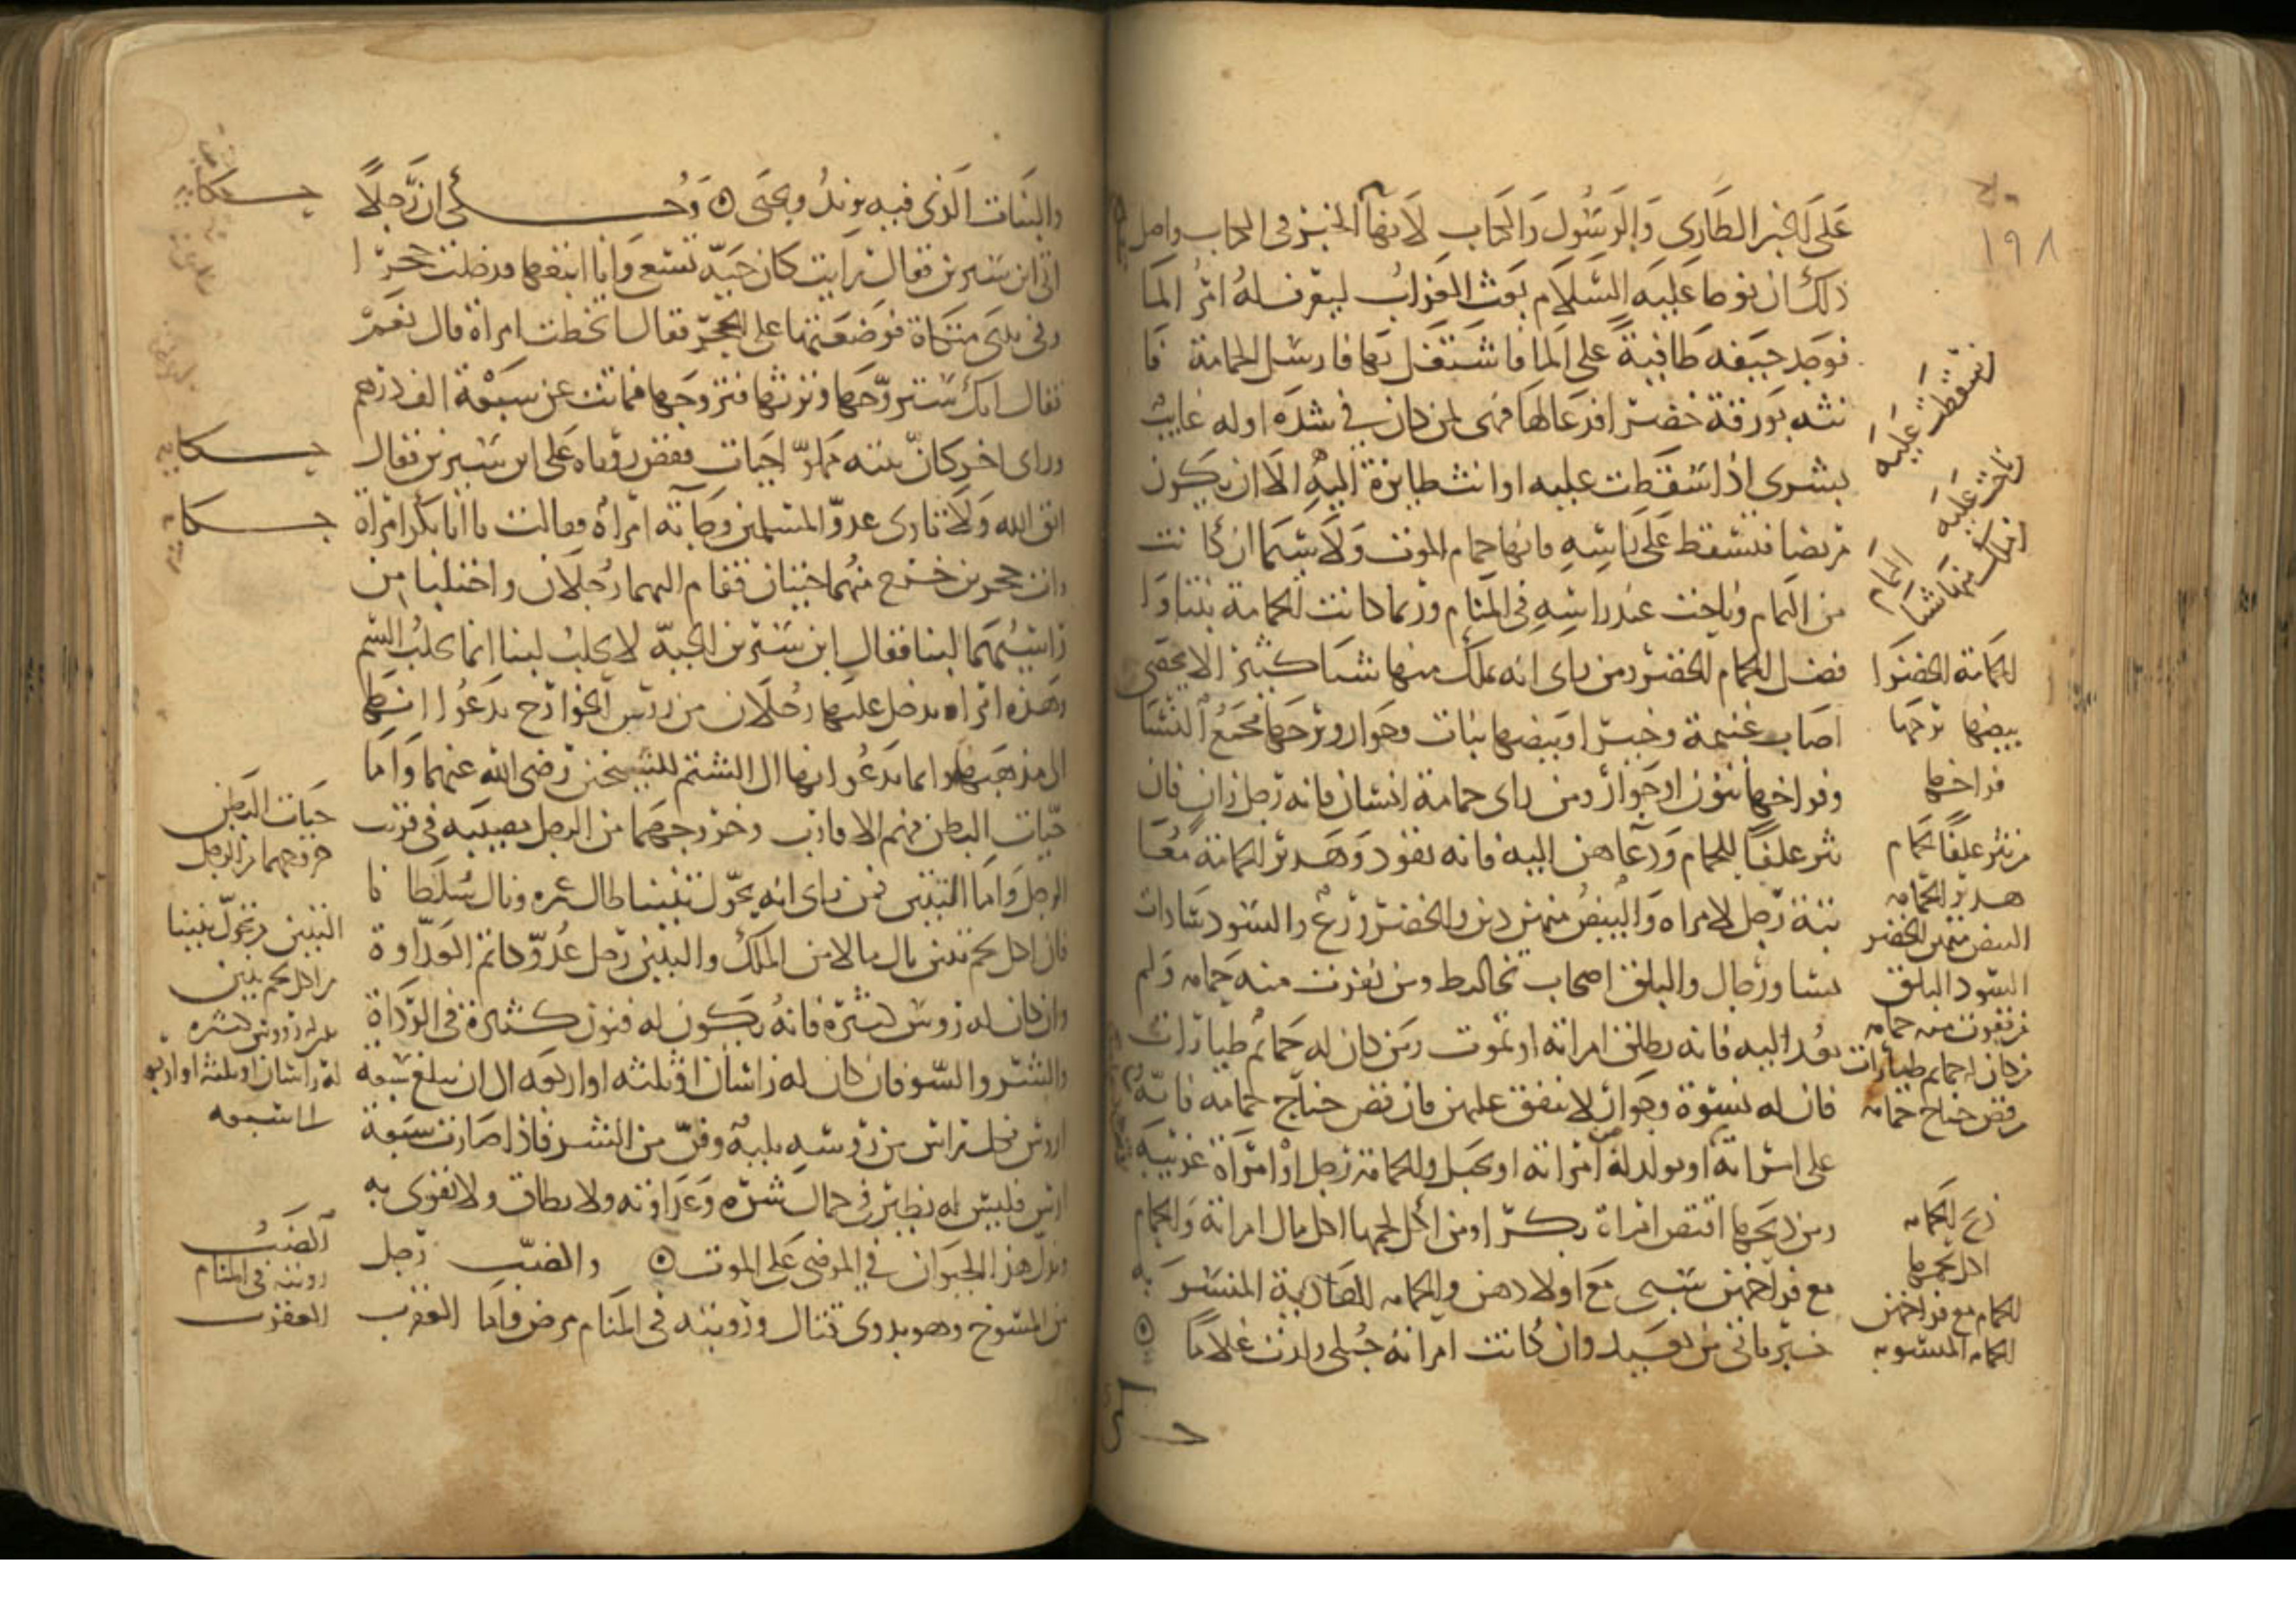 ١٩٨
على الخبر الطارى والرسول والكتاب لانها الخبر فى الكتاب واصل
ذلك ان نوحا عليه السلام بعث الغراب ليعرف له امر الما
فوجد جيفه طافية على الما فاشتغل بها فارسل الحمامة فا
تته بورقة خضرا فدعا لها فهى لمن كان فى شدة او له غايب
بشرى اذا سقطت عليه او اتت طايرة اليه الا ان يكون
مريضا فتسقط على راسه فانها حمام الموت ولا سيما ان كانت
من اليمام وناحت عند راسه فى المنام وربما كانت الحمامة بنتا وا
فضل الحمام الخضر ومن راى انه ملك منها شيا كثيرا لا يحصى
اصاب غنيمة وخيرا وبيضها بنات وجوار وبرجها مجمع النسا
وفراخها بنون او جوار ومن راى حمامة انسان فانه رجل زان فان
نثر علفا للحمام ودعاهن اليه فانه يقود وهدير الحمامة معا
تبة رجل لامراه والبيض منهن دين والخضر ورع والسود سادات
نسا ورجال والبلق اصحاب تخاليط ومن نفرت منه حمامه ولم
تعد اليه فانه يطلق امراته او تموت ومن كان له حمايم طيارات
فان له نسوة وجوار لا ينفق عليهن فان قص جناح حمامه فانه
على امراته او يولد له من امراته او تحبل والحمامة رجل او امراة عربية
ومن ذبحها افتض امراة بكرا ومن اكل لحمها اكل مال امراته والحمام
مع فراخهن سبى مع اولادهن والحمامه الهادية المنسوبه
خبر ياتى من بعيد وان كانت امراته حبلى ولدت غلاما
ان سقطت عليه
الحمامة الخضرا
بيضها برجها
فراخها
من نثر علفا لحمام
هدير الحمامه
البيض منهن الخضر
السود البلق
من نفرت منه حمامه
من كان له حمايم طيارات
من قص جناح حمامه
ذبح الحمامه
اكل لحمها
الحمام مع فراخهن
الحمامه المنسوبه
والنبات الذى فيه يزيد ويحيى وحكى ان رجلا
اتى ابن سيرين فقال رايت كان حية تسعى وانا اتبعها فدخلت جحرا
وفى يدى مسحاة فوضعتها على الجحر فقال اتخطب امراة قال نعم
فقال انك ستتزوجها وترثها فتزوجها فماتت عن سبعة الف درهم
وراى اخر كان بيته مملوا حيات فقص روياه على ابن سيرين فقال
اتق الله ولا تاوى عدو المسلمين وجاته امراة فقالت يا ابا بكر امراة
رات جحرين خرج منهما حيتان فقام اليهما رجلان واحتلبا من
راسيهما لبنا فقال ابن سيرين الحية لا تحلب لبنا انما تحلب السم
وهذه امراه يدخل عليها رجلان من رءوس الخوارج يدعوانها
الى مذهبهما وانما يدعوانها الى الشتم للشيخين رضى الله عنهما واما
حيات البطن فهم الاقارب وخروجهما من الرجل مصيبه فى قرب
الرجل واما التنين فمن راى انه يحول تنينا طال عمره ونال سلطانا
فان اكل لحم تنين نال مالا من الملك والتنين رجل عدو كاتم العداوة
وان كان له رءوس كثيرة فانه يكون له فنون كثيرة فى الرداة
والشر والسو فان كان له راسان او ثلثه او اربعه الى ان يبلغ سبعة
اروس فكل راس من رءوسه بليه وفن من الشر فاذا صارت سبعة
اروس فليس له نظير فى حال شره وعداوته ولا يطاق ولا يقوى به
ويدل هذا الحيوان فى المرضى على الموت والضب رجل
من المسوخ وهو بدوى قتال ورويته فى المنام مرض واما العقرب
حكاية
حكاية
حكاية
حيات البطن
خروجهما من الرجل
التنين من تحول تنينا
من اكل لحم تنين
له رءوس كثيره
له راسان او ثلثه او اربعه
الى سبعه
الضب
رويته فى المنام
العقرب